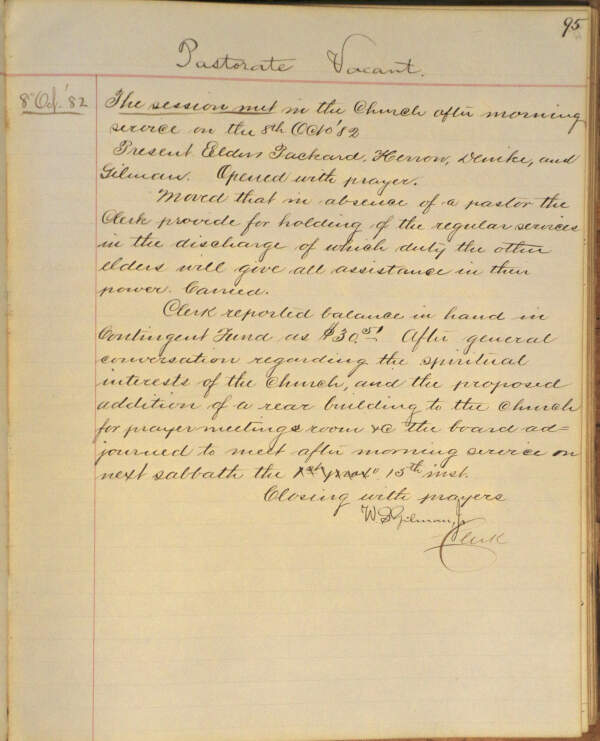 95
Pastorate Vacant.
8" Oct. '82
The session met in the Church after morning
service on the 8th Octo '82
Present Elders Packard, Herron, Denike, and
Gilman. Opened with prayer.
Moved that in absence of a pastor the
Clerk provide for holding of the regular services
in the discharge of which duty the other
elders will give all assistance in their
power. Carried.
Clerk reported balance in hand in
Contingent Fund as $30.51 After general
conversation regarding the spiritual
interests of the Church, and the proposed
addition of a rear building to the Church
for prayer meetings room &c the board ad=
journed to meet after morning service on
next sabbath the 1st proxo 15th inst.
Closing with prayers
W. S. Gilman, Jr
Clerk